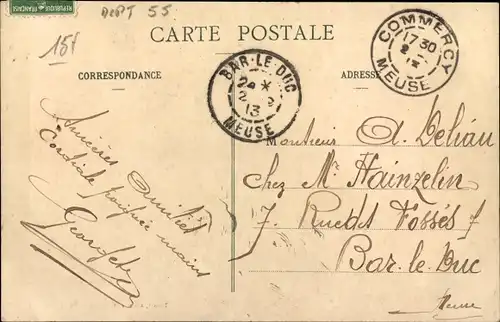 REPUBLIQUE FRANÇAISE
DEPT 55
15f
CARTE POSTALE
CORRESPONDANCE
ADRESSE
BAR-LE-DUC
24 *
2
13
MEUSE
COMMERCY
17 30
MEUSE
Sincères Amitiés
Cordiale poignée mains
Monsieur A. Deliau
chez Mr Hainzelin
7. Rue des Fossés
Bar-le-Duc
Meuse